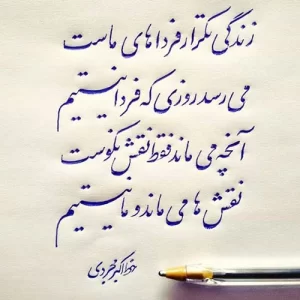 زندگی تکرار فردا های ماست
می رسد روزی که فردا نیستیم
آنچه می ماند فقط نقش نکوست
نقش ها می ماند و ما نیستیم
خط اکبر